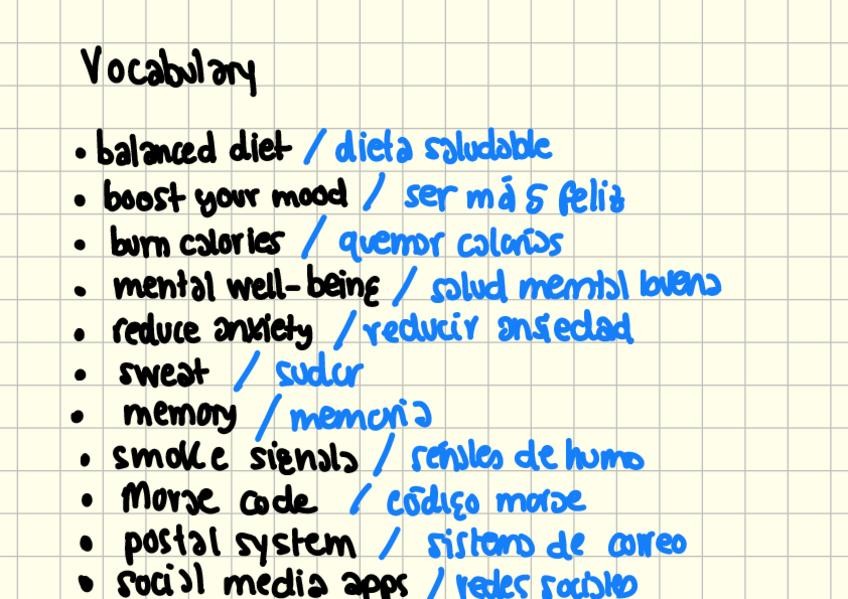 Vocabulary
• balanced diet / dieta saludable
• boost your mood / ser más feliz
• burn calories / quemar calorías
• mental well-being / salud mental buena
• reduce anxiety / reducir ansiedad
• sweat / sudar
• memory / memoria
• smoke signals / señales de humo
• Morse code / código morse
• postal system / sistema de correo
• social media apps / redes sociales